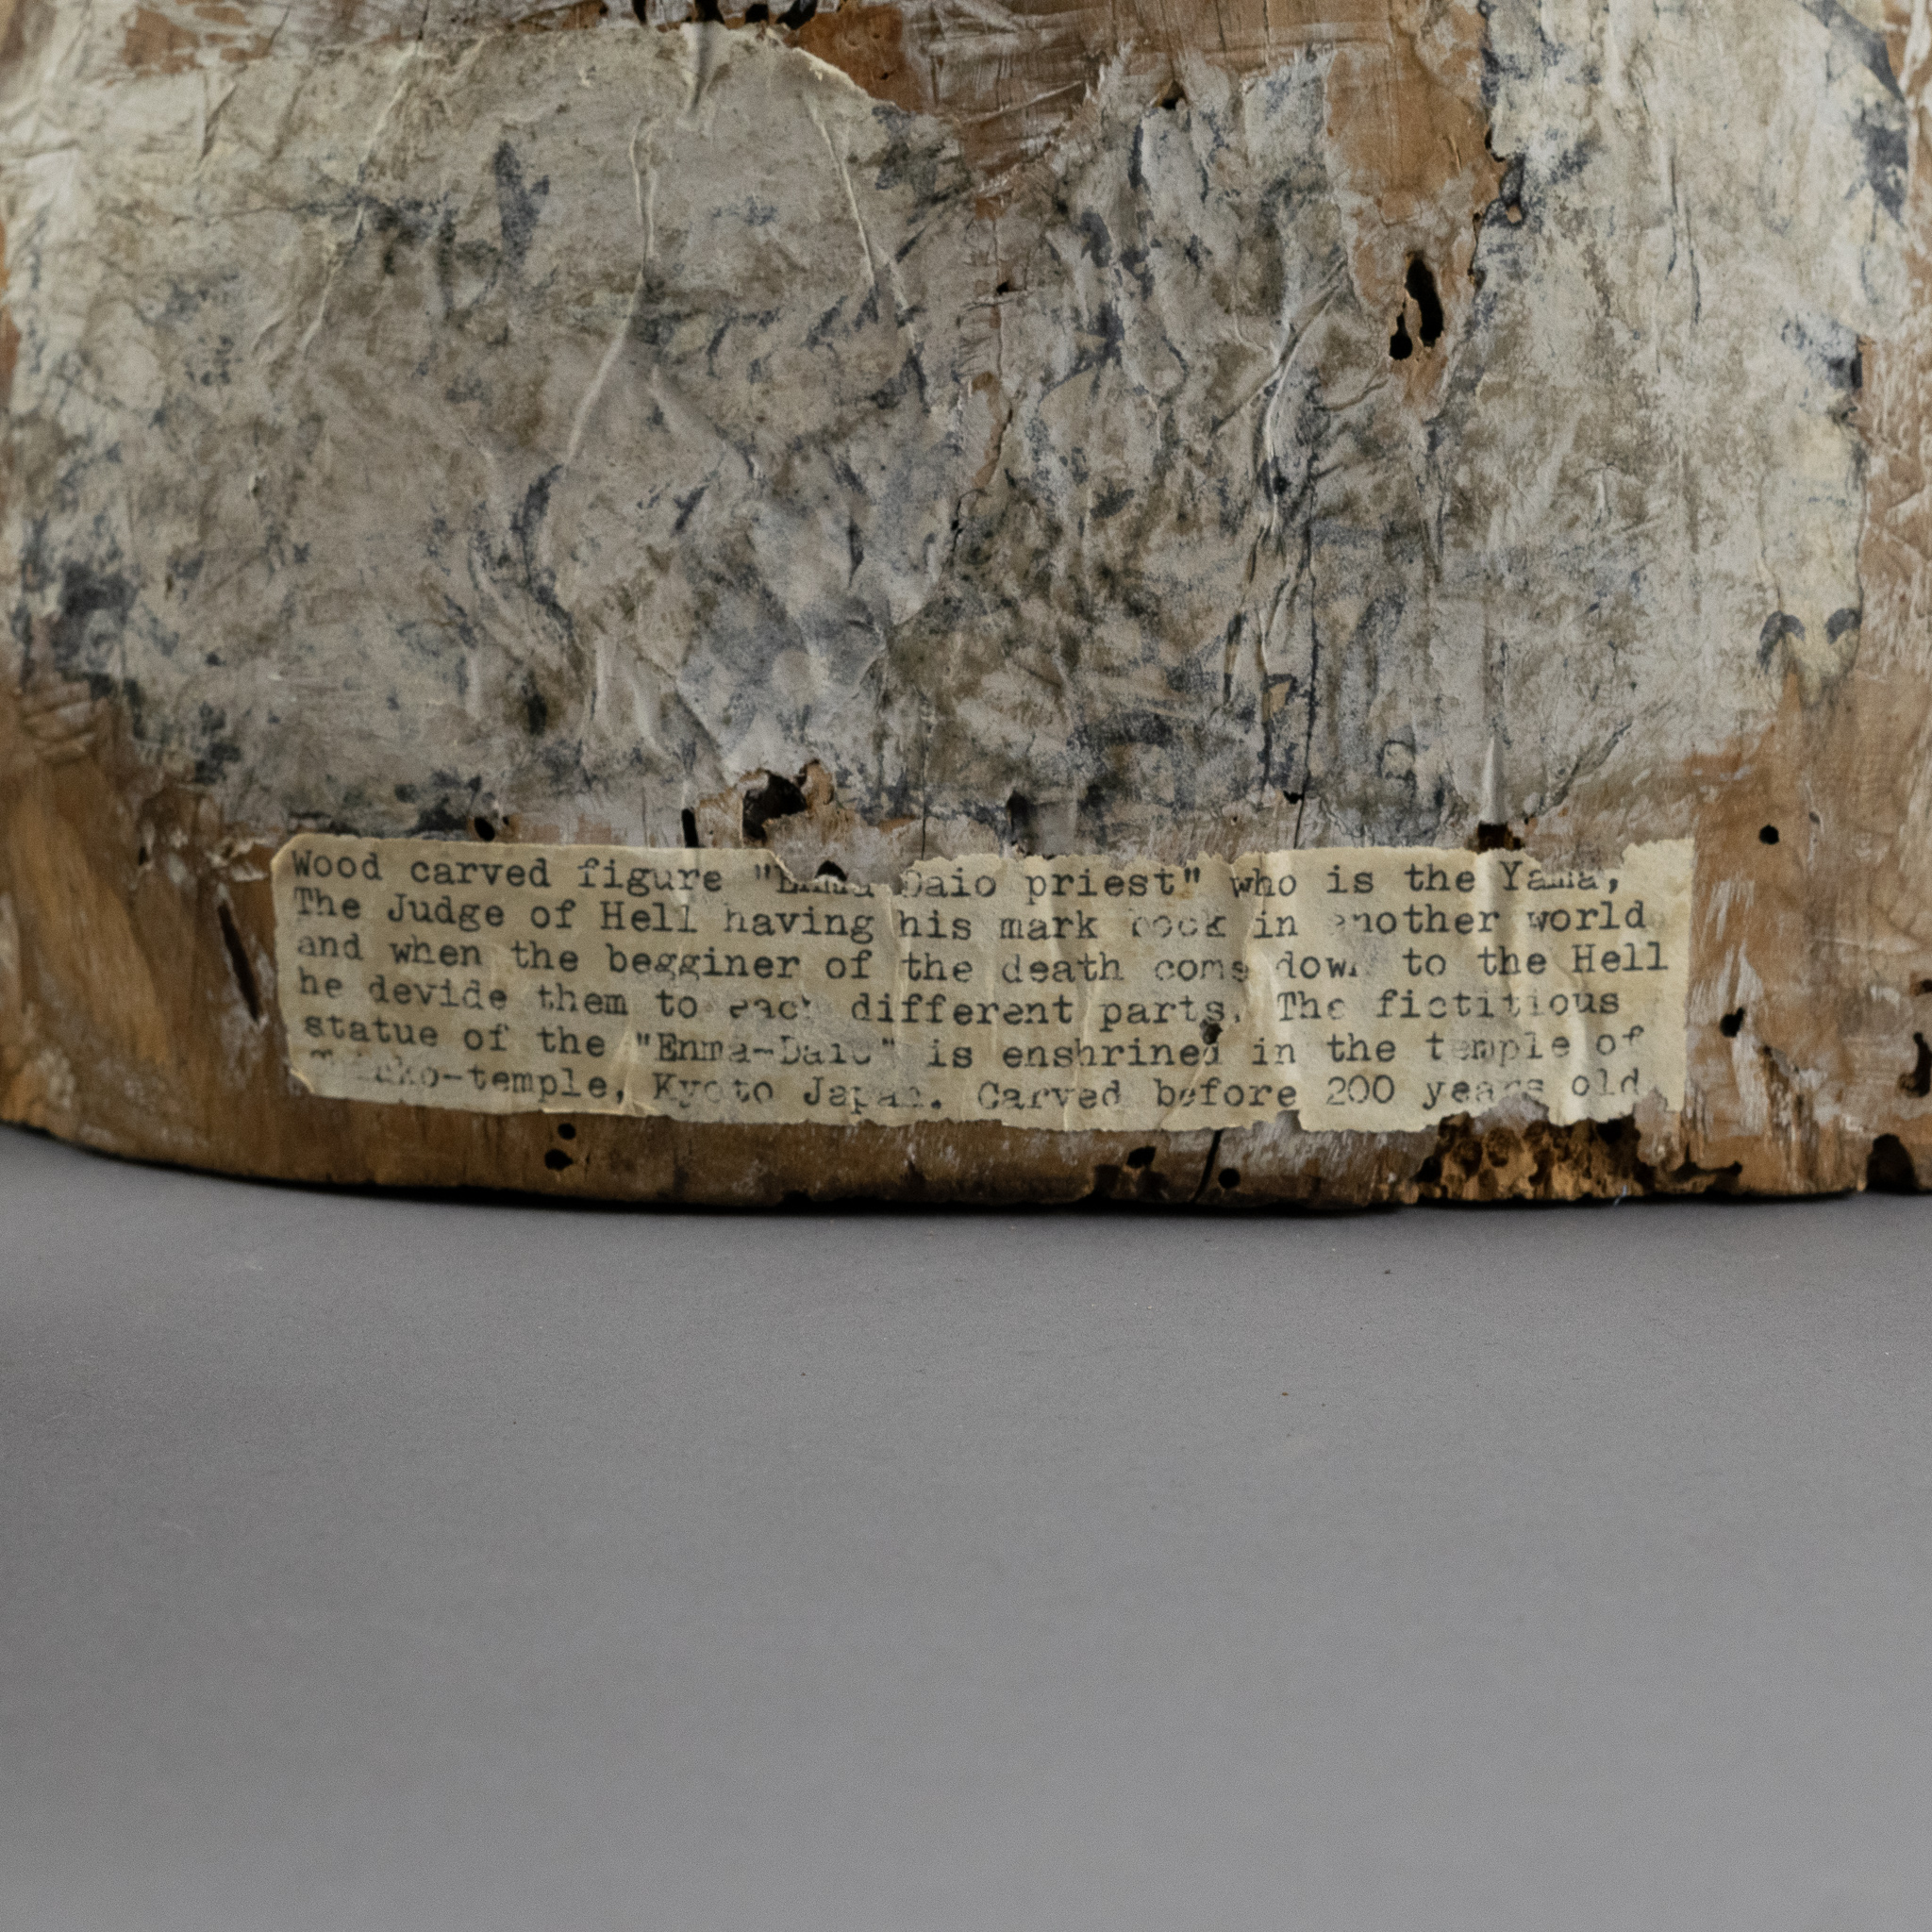 Wood carved figure "Enma Daio priest" who is the Yama,
The Judge of Hell having his mark book in another world
and when the begginer of the death come down to the Hell
he devide them to each different parts. The fictitious
statue of the "Enma-Daio" is enshrined in the temple of
temple, Kyoto Japan. Carved before 200 years old.